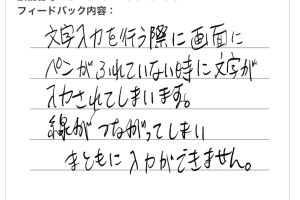 フィードバック内容：
文字入力を行う際に画面に
ペンがふれていない時に文字が
入力されてしまいます。
線がつながってしまい
まともに入力ができません。